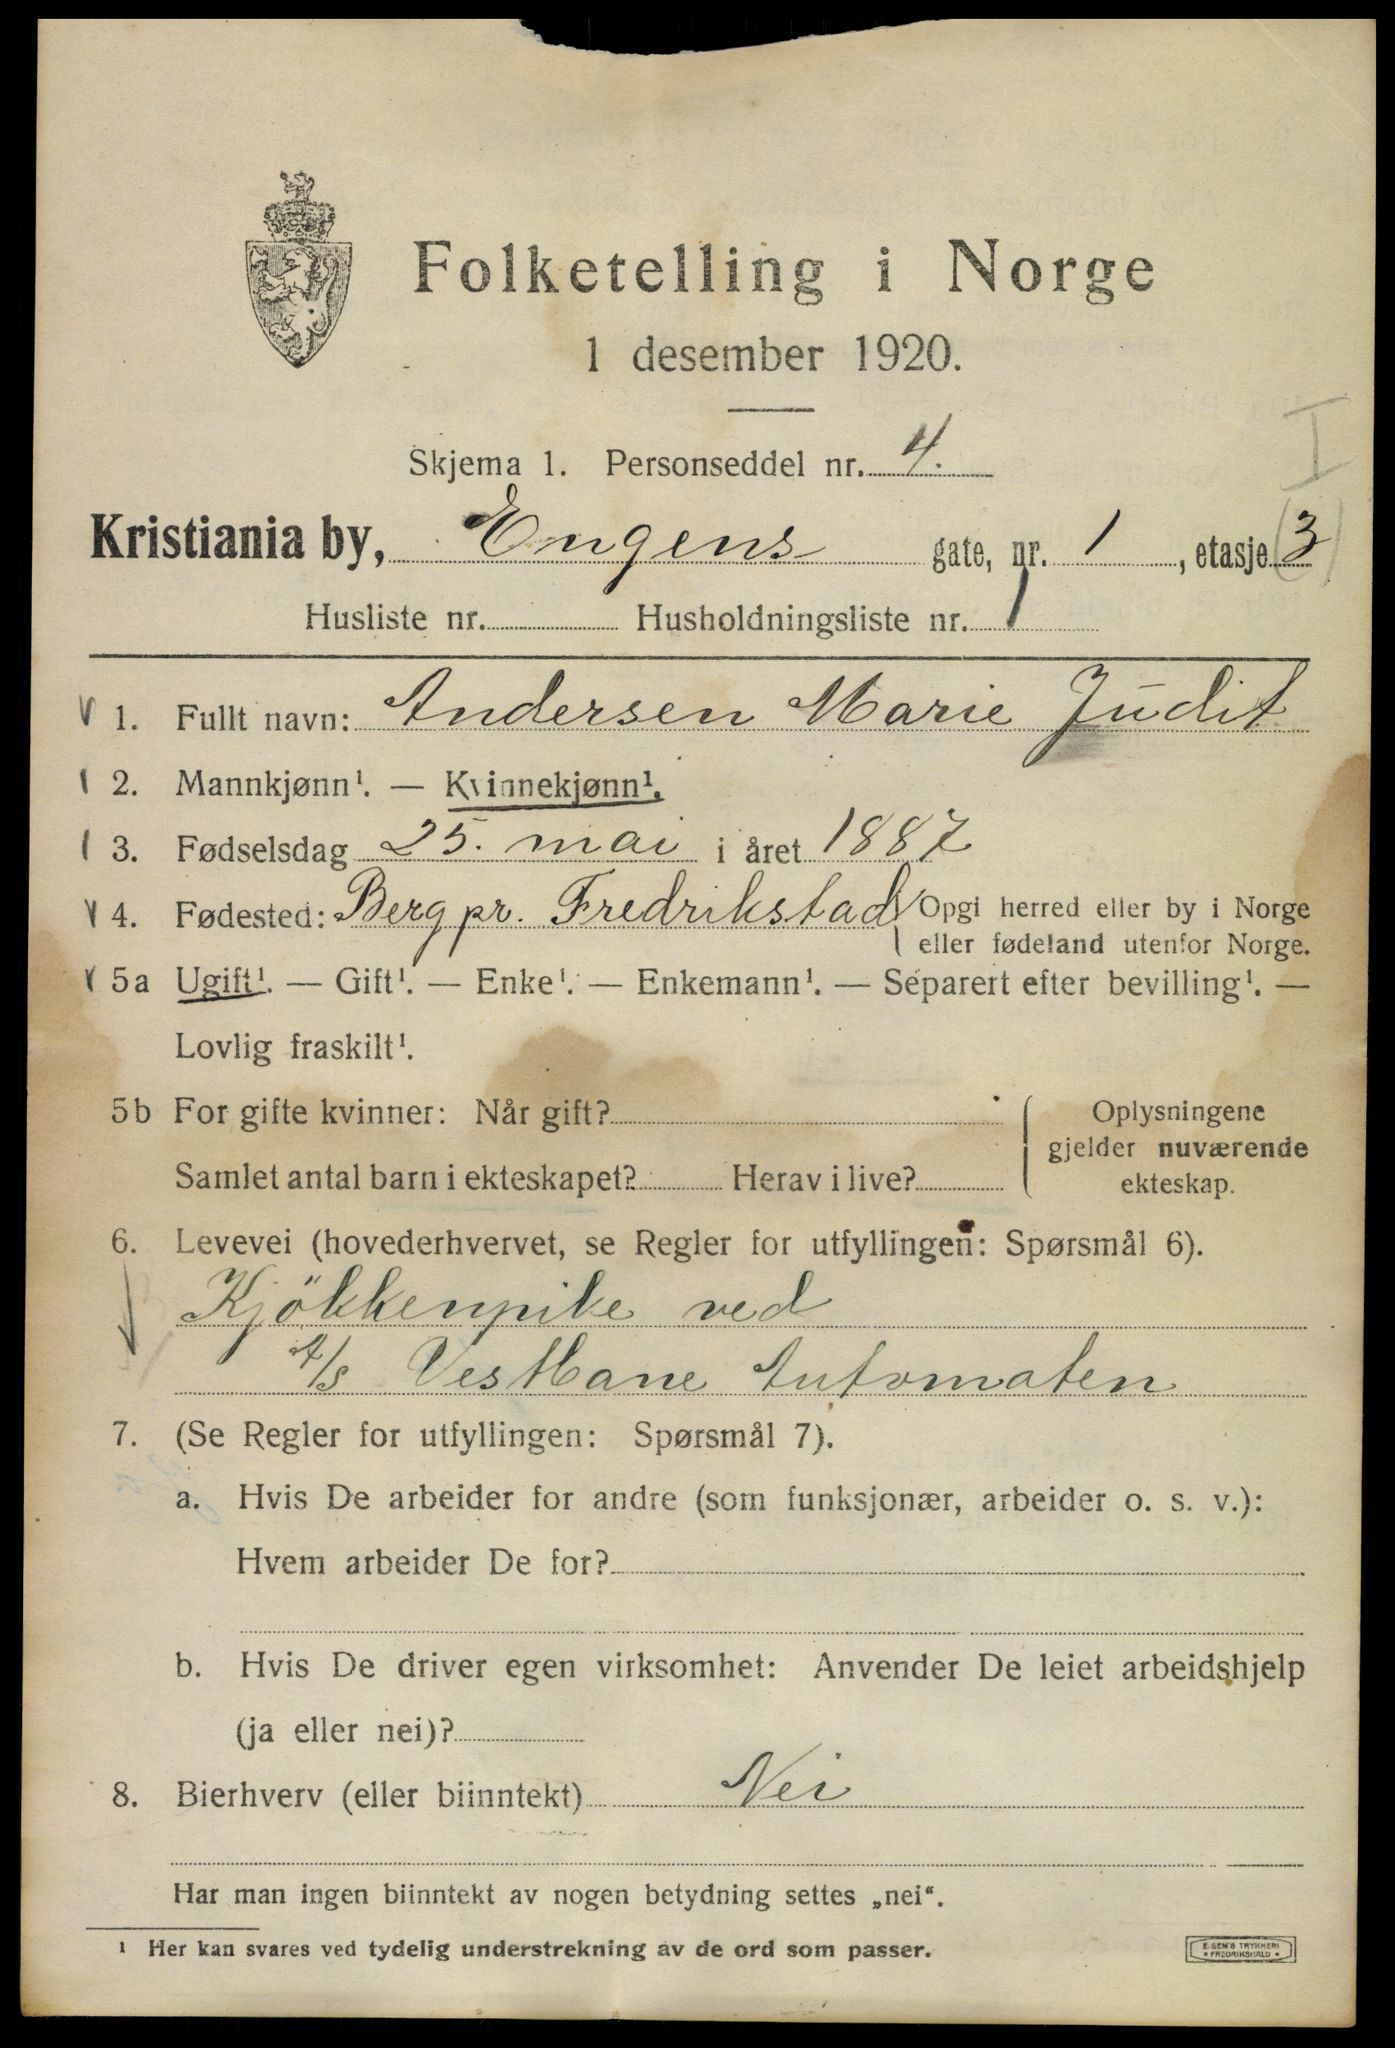 Folketelling i Norge
1 desember 1920.
Skjema 1. Personseddel nr. 4.
I
Kristiania by, Engens gate, nr. 1, etasje (3)
Husliste nr. Husholdningsliste nr. 1
V 1. Fullt navn: Andersen Marie Judit
2. Mannkjønn¹. — Kvinnekjønn¹.
3. Fødselsdag 25. mai i året 1887
V 4. Fødested: Berg pr. Fredrikstad { Opgi herred eller by i Norge
eller fødeland utenfor Norge.
V 5a Ugift¹. — Gift¹. — Enke¹. — Enkemann¹. — Separert efter bevilling¹. —
Lovlig fraskilt¹.
5b For gifte kvinner: Når gift?
Samlet antal barn i ekteskapet? Herav i live?
Oplysningene
gjelder nuværende
ekteskap.
6. Levevei (hovederhvervet, se Regler for utfyllingen: Spørsmål 6).
Kjökkenpike ved
A/S Vestbane Automaten
7. (Se Regler for utfyllingen: Spørsmål 7).
a. Hvis De arbeider for andre (som funksjonær, arbeider o. s. v.):
Hvem arbeider De for?
b. Hvis De driver egen virksomhet: Anvender De leiet arbeidshjelp
(ja eller nei)?
8. Bierhverv (eller biinntekt) Nei
Har man ingen biinntekt av nogen betydning settes „nei“.
¹ Her kan svares ved tydelig understrekning av de ord som passer.
E. SEM'S TRYKKERI
• FREDRIKSHALD •